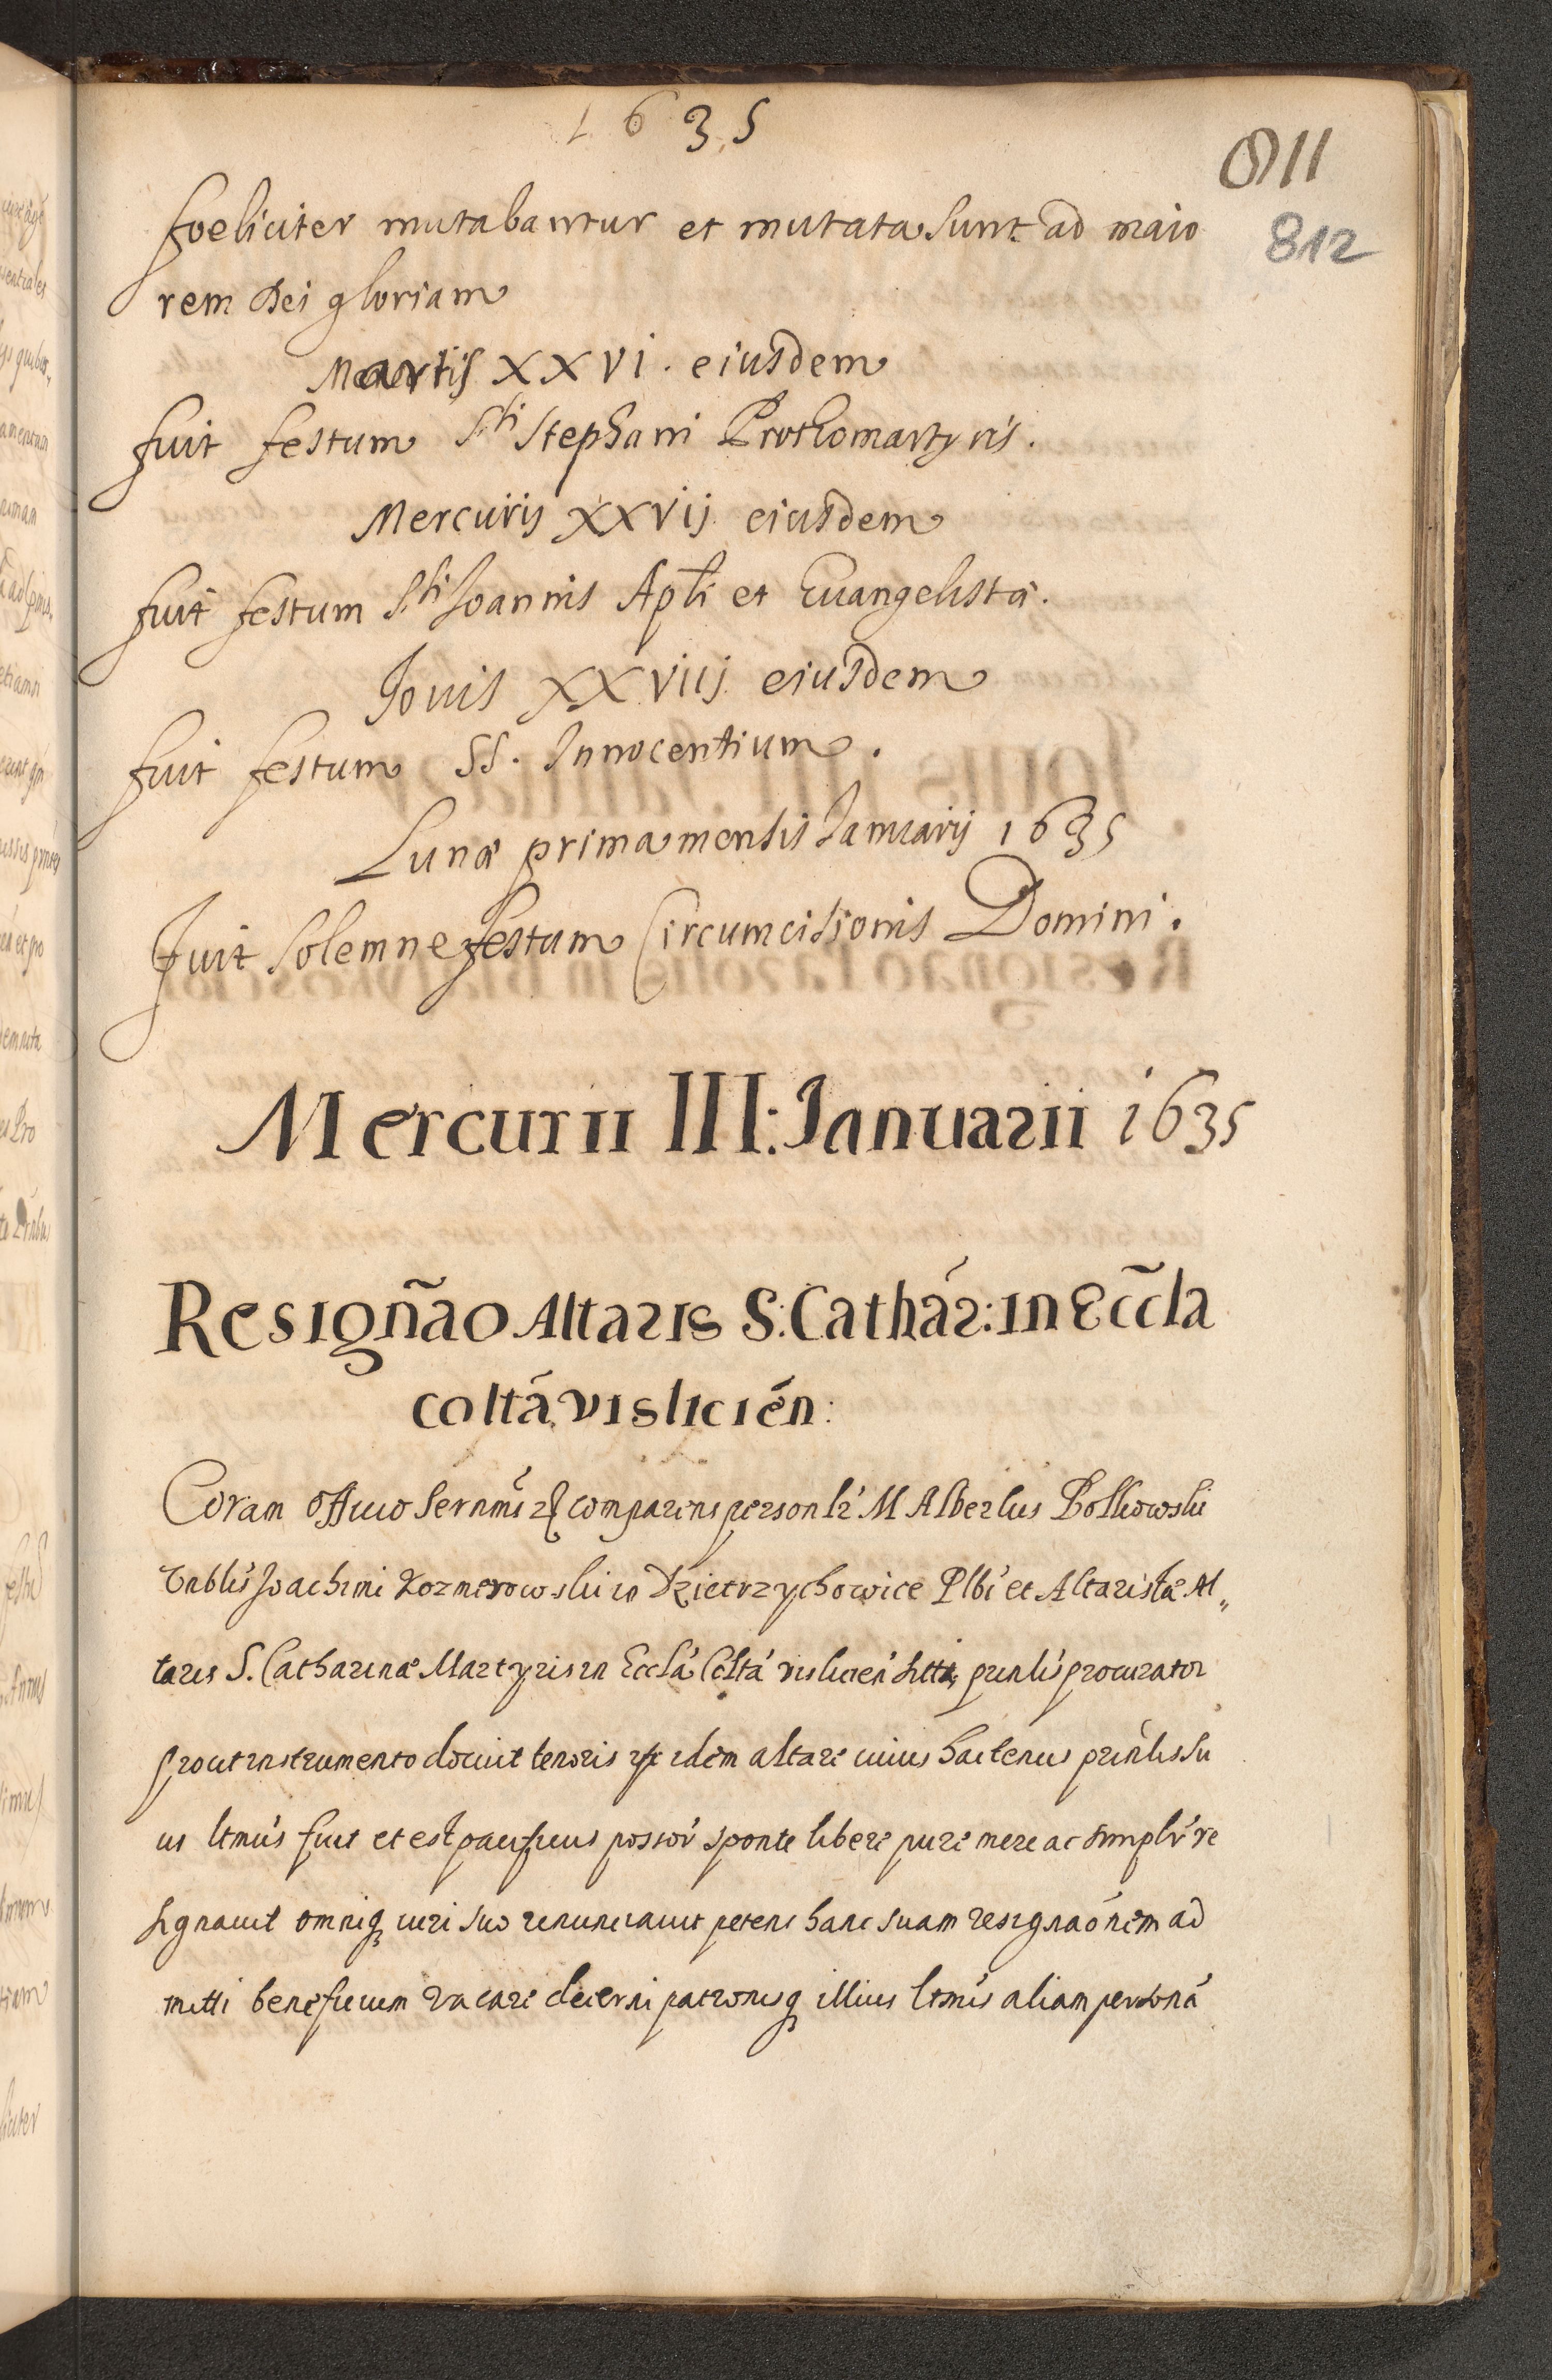 1635
811
812
foeliciter mutabantur et mutata sunt ad maio
rem Dei gloriam
Martis XXVI. eiusdem
fuit festum Sti Stephani Prothomartyris.
Mercurij XXVij eiusdem
fuit festum Sti Joannis Apłi et Euangelistæ.
Jouis XXViij eiusdem
fuit festum SS. Innocentium.
Lunæ prima mensis Januarij 1635
Fuit solemne festum Circumcisionis Domini.
Mercurii III: Ianuarii 1635
Resignãao Altaris S: Cathár: in Eccl̃a
coltá vislicién:
Coram officio comparens personlr M Albertus
Joachimi Dzietrzychowice Plbi et Altaristæ Al„
taris S. Catharinæ Martyris in Ecclá Coltá vislicień sitti prinlis procurator
prout instrumento docuit tenoris idem altare cuius hactenus prinlis su
us ltmus fuit et est pacificus possor sponte libere pure mere ac simplr re
signauit omniq iuri suo renunciauit petens hanc suam resignaónem ad
mitti beneficium vacare decerni patronisq illius ltmis aliam personá